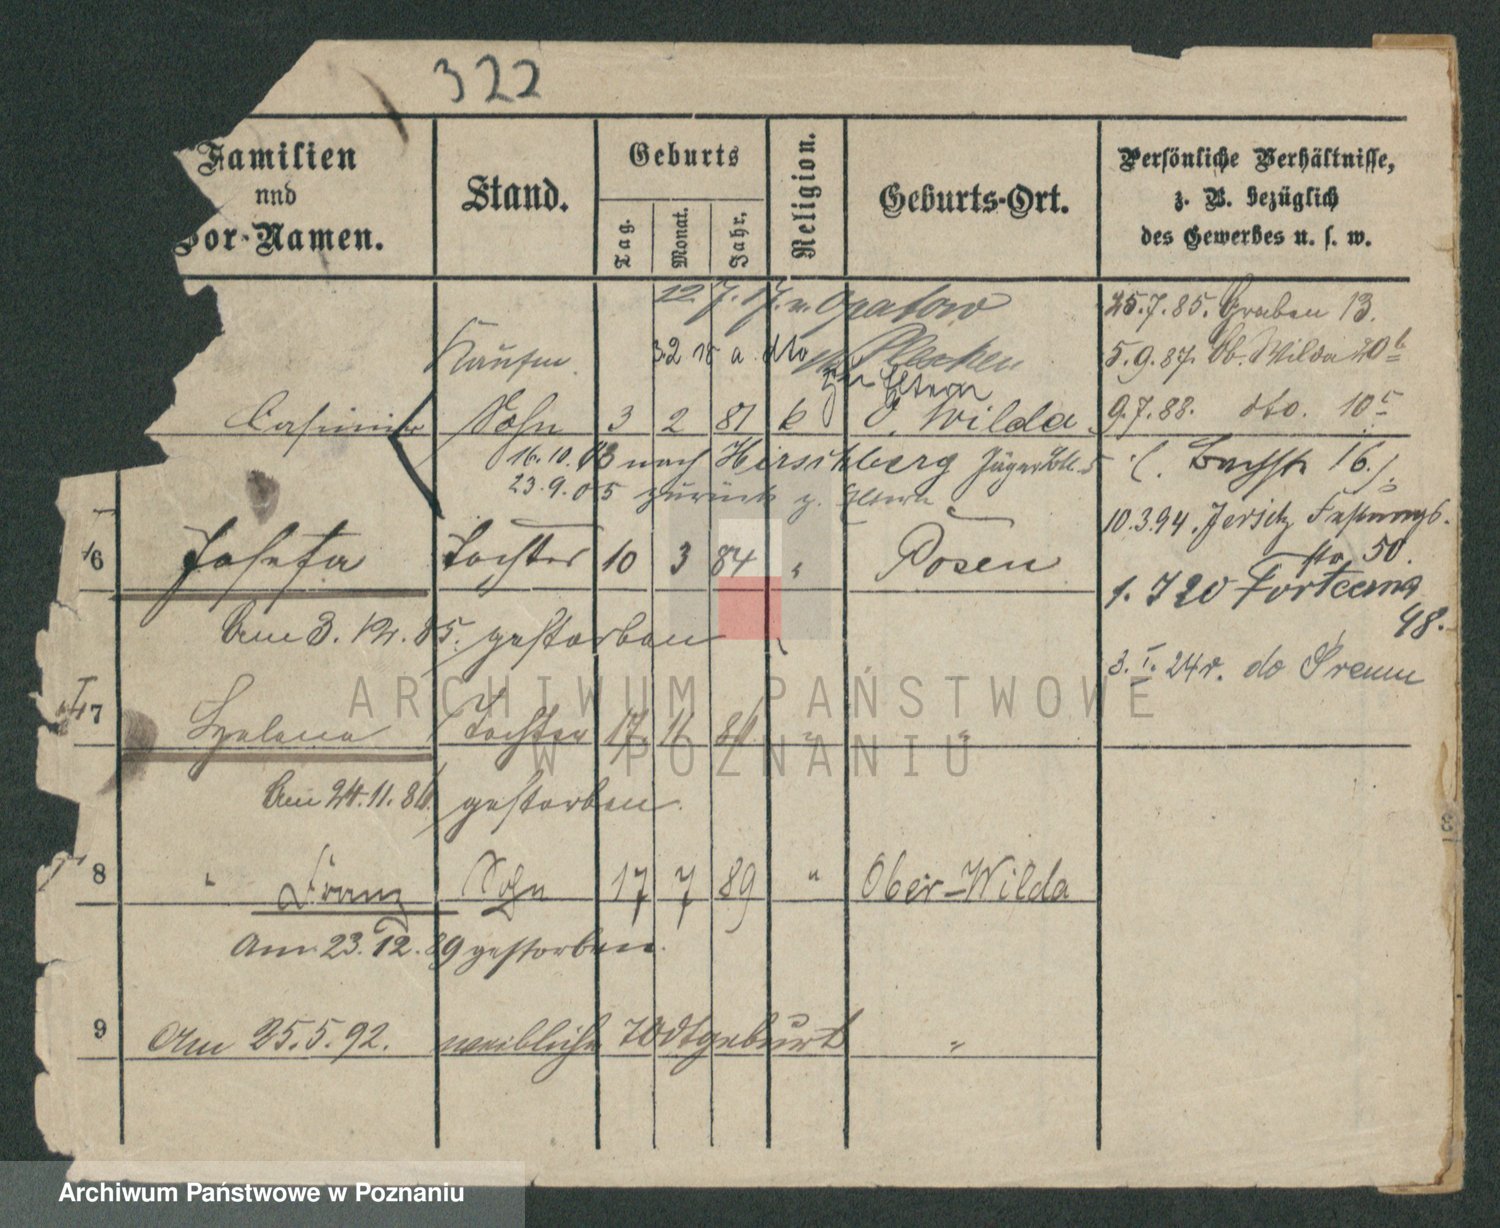 322
Familien
und
Vor-Namen.
Stand.
Geburts
Tag.
Monat.
Jahr.
Religion.
Geburts-Ort.
Persönliche Verhältnisse,
z. B. bezüglich
des Gewerbes u. s. w.
22. 7. 17. v. Grabow
Kaufm. 3.2 18 a. dto Pleschen
zu Eltern
Casimir Sohn 3 2 81 k O. Wilda
16.10.03 nach Hirschberg Jäger 5
23.9.05 zurück z. Eltern
6 Josefa Tochter 10 3 84 " Posen
Am 3. 12. 85. gestorben
7 Helena Tochter 17. 11 86 " "
Am 24.11.86 gestorben.
8 " Franz Sohn 17 7 89 " Ober-Wilda
Am 23.12.89 gestorben.
9 Am 25.5.92. weibliche Todtgeburt "
25.7.85. Graben 13.
5.9.87. Ob. Wilda 20b
9.7.88. dto. 10c
16.
10.3.94. Jersitz Festungs-
str. 50.
1. 7 20 Forteczna
48.
3. I. 24 r. do Śremu
ARCHIWUM PAŃSTWOWE
W POZNANIU
Archiwum Państwowe w Poznaniu